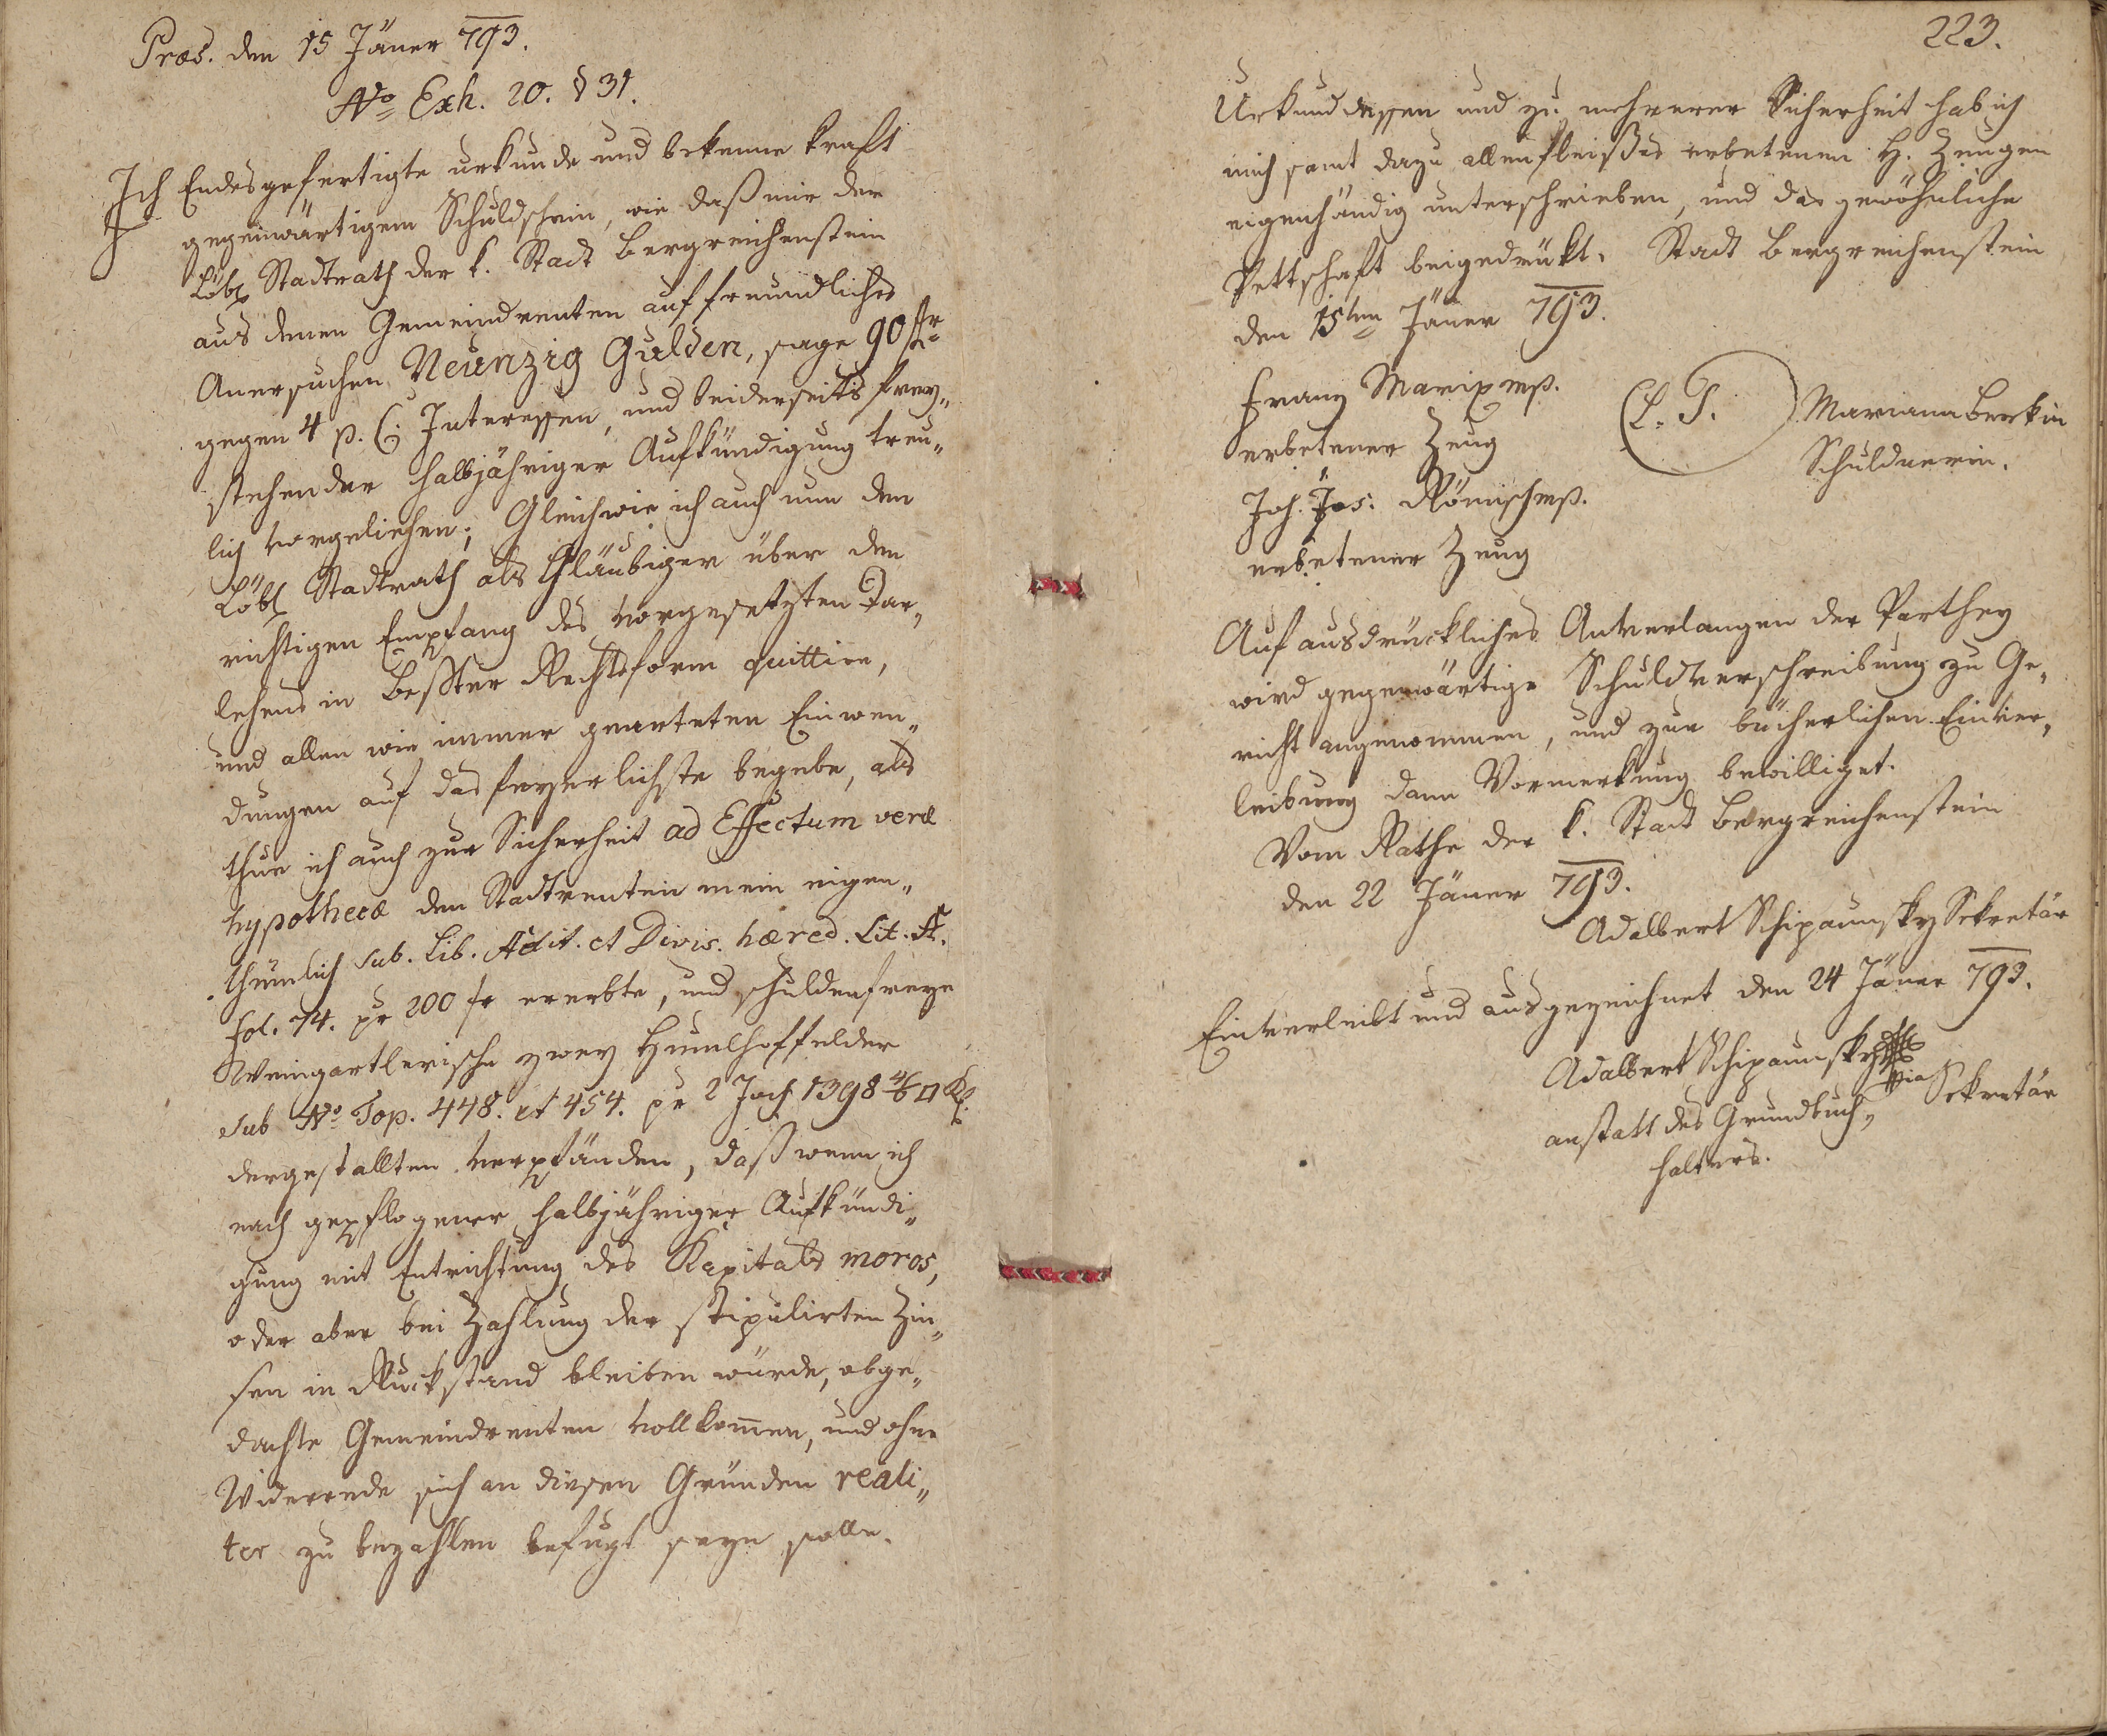 Præs. den 15 Jäner 793.
No Exh. 20. § 31.
Ich Endesgefertigte urkunde und bekenne kraft
gegenwärtigem Schuldschein, wie daß mir der
Löbl. Stadtrath der k. Stadt Bergreichenstein
aus denen Gemeindrenten auf freundliches
Anersuchen Neunzig Gulden, sage 90 fr
gegen 4 p. C. Interessen, und beiderseits frey„
stehender halbjähriger Aufkündigung treu„
lich vorgeliehen; Gleichwie ich auch nun den
Löbl Stadtrath als Gläubiger über den
richtigen Empfang des vorgesetzten Dar„
lehens in bester Rechtsform quittire,
und allen wie immer gearteten Einwen„
dungen auf das feyerlichste begebe, als
thue ich auch zur Sicherheit ad Effectum veræ
hypothecæ den Stadtrenten mein eigen„
thümlich sub. Lib. Adit. et Divis. hæred. Lit. A.
fol. 74. pr 200 fr ererbte, und schuldenfreye
Weingartlerische zwey Humlhoffelder
sub No Top. 448. et 454. pr 2 Joch 1398 4/6 □ Kl.
dergestallten verpfänden, daß wenn ich
nach gepflogener halbjähriger Aufkündi„
gung mit Entrichtung des Kapitals moros,
oder aber bei Zahlung der stipulirten Zin„
sen in Ruckstand bleiben würde, obge„
dachte Gemeindrenten vollkom̅en, und ohne
Widerrede sich an diesen Gründen reali„
ter zu bezahlen befugt seyn solle.
223.
Urkund dessen und zu mehrerer Sicherheit hab ich
mich samt dazu allenfleißes erbetenen H. Zeugen
eigenhändig unterschrieben, und das gewöhnliche
Pettschaft beigedrükt. Stadt Bergreichenstein
den 15ten Jäner 793.
Franz Marix mp.
erbetener Zeug
(L. S.) Mariana Berkin
Schuldnerin.
Joh. Jos. Römisch mp.
erbetener Zeug
Auf ausdrückliches Anverlangen der Parthey
wird gegenwärtige Schuldverschreibung zu Ge„
richt angenommen, und zur bücherlichen Einver„
leibung dann Vormerkung bewilliget.
Vom Rathe der k. Stadt Bergreichenstein
den 22 Jäner 793.
Adalbert Schipaunsky Sekretär
Einverleibt und ausgezeichnet den 24 Jäner 793.
Adalbert Schipaunsky
Sekretär
anstatt des Grundbuch„
halters.